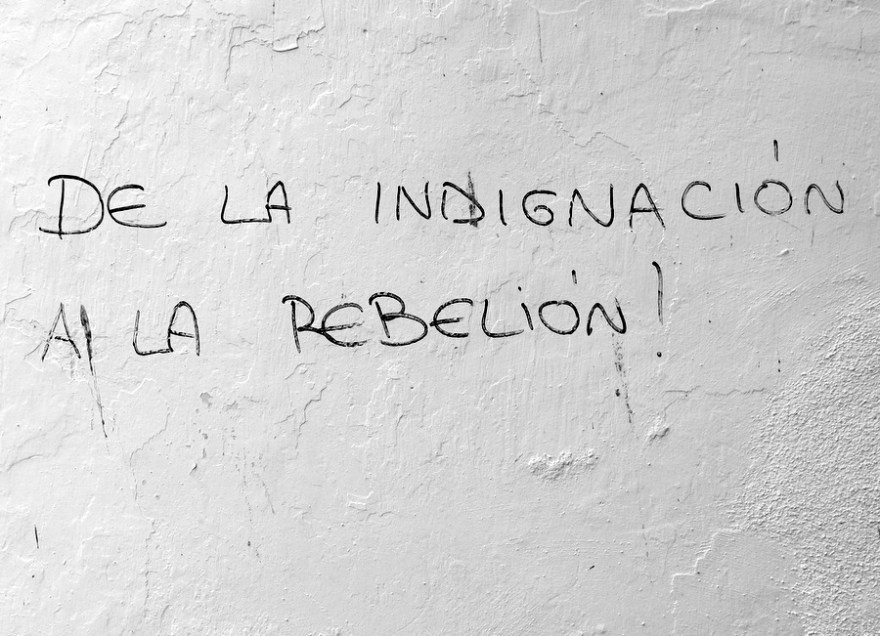 DE LA INDIGNACIÓN
A LA REBELIÓN!